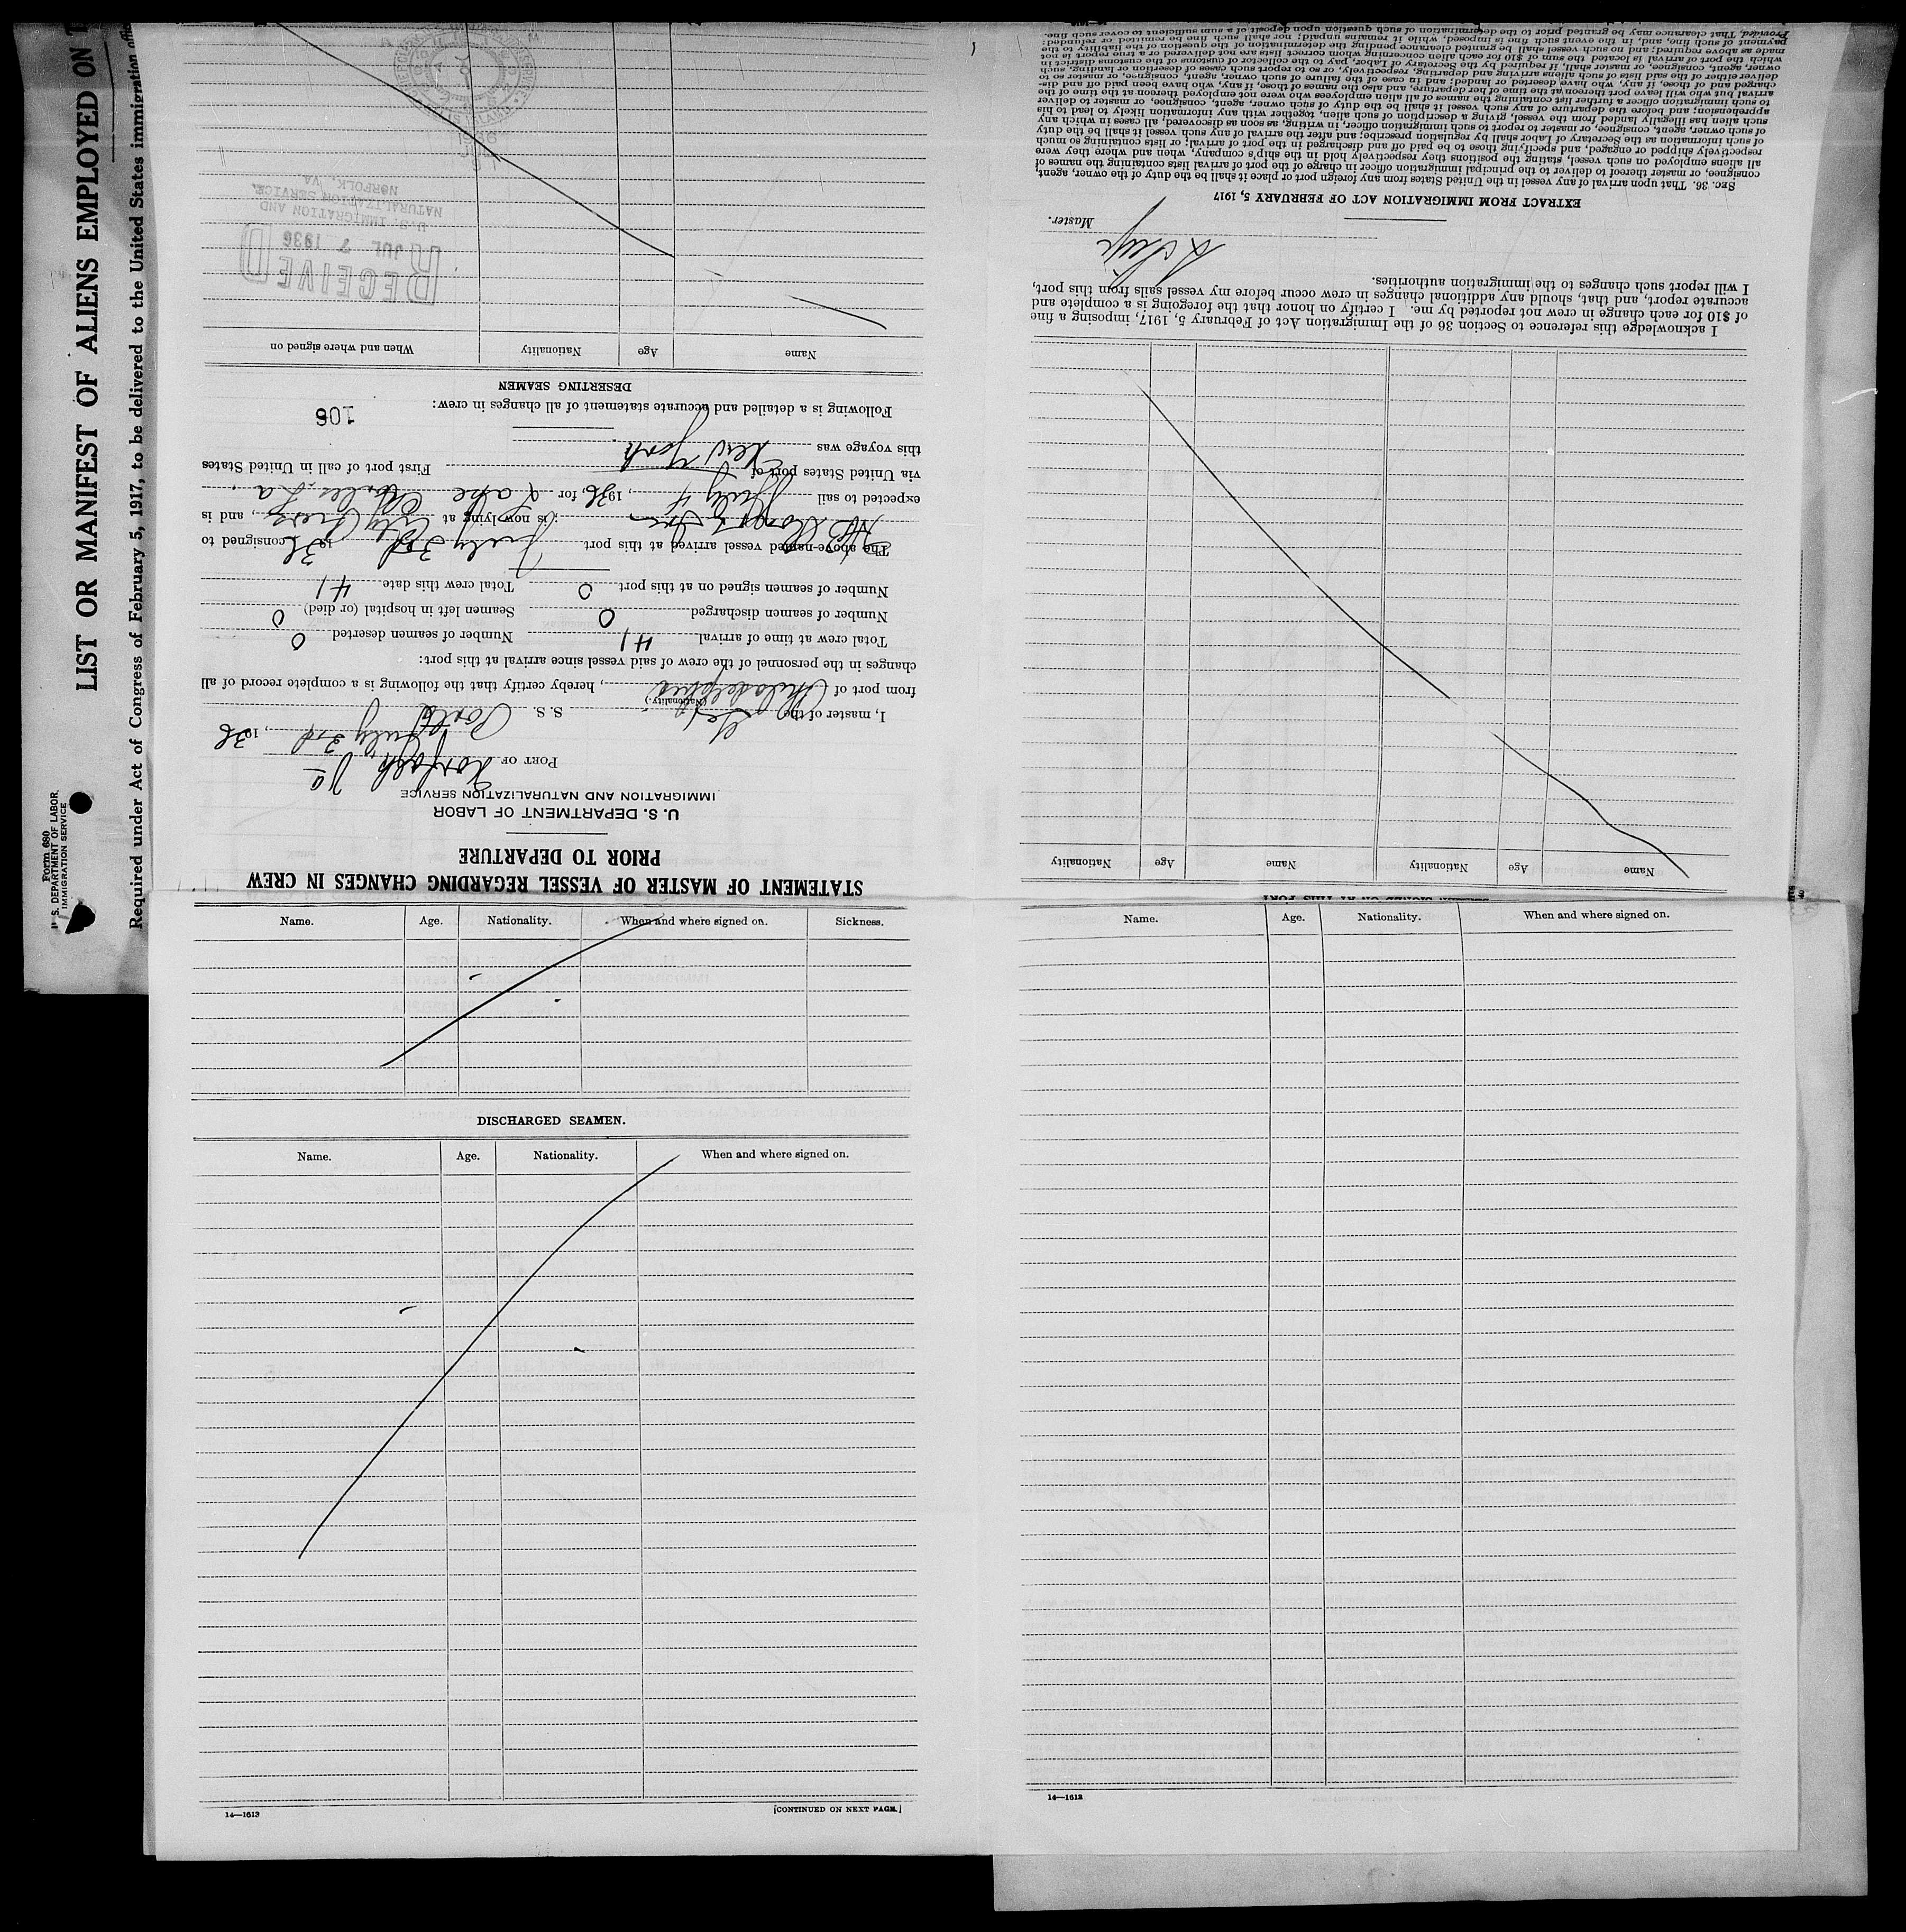 Form 680
U. S. DEPARTMENT OF LABOR
IMMIGRATION SERVICE
LIST OR MANIFEST OF ALIENS EMPLOYED ON
Required under Act of Congress of February 5, 1917, to be delivered to the United States immigration
STATEMENT OF MASTER OF VESSEL REGARDING CHANGES IN CREW
PRIOR TO DEPARTURE
U. S. DEPARTMENT OF LABOR
IMMIGRATION AND NATURALIZATION SERVICE
PORT OF Norfolk Va
July 3rd, 1936
I, master of the S. S.
(Nationality)
from port of Philadelphia, hereby certify that the following is a complete record of all
changes in the personnel of the crew of said vessel since arrival at this port:
Total crew at time of arrival 41 Number of seamen deserted 0
Number of seamen discharged 0 Seamen left in hospital (or died) 0
Number of seamen signed on at this port 0 Total crew this date 41
The above-named vessel arrived at this port July 3rd 1936 consigned to
is now lying at City Piers, and is
expected to sail July 4, 1936, for Lake Charles. La.
via United States port of First port of call in United States
this voyage was New York.
Following is a detailed and accurate statement of all changes in crew:
106
DESERTING SEAMEN
Name Age Nationality When and where signed on
RECEIVED
JUL 7 1936
U. S. IMMIGRATION AND
NATURALIZATION SERVICE,
NORFOLK, VA.
SEAMEN SIGNED ON AT THIS PORT
Name Age Nationality Name Age Nationality
I acknowledge this reference to Section 36 of the Immigration Act of February 5, 1917, imposing a fine
of $10 for each change in crew not reported by me. I certify on honor that the foregoing is a complete and
accurate report, and that, should any additional changes in crew occur before my vessel sails from this port,
I will report such changes to the immigration authorities.
Master.
EXTRACT FROM IMMIGRATION ACT OF FEBRUARY 5, 1917
SEC. 36. That upon arrival of any vessel in the United States from any foreign port or place it shall be the duty of the owner, agent,
consignee, or master thereof to deliver to the principal immigration officer in charge of the port of arrival lists containing the names of
all aliens employed on such vessel, stating the positions they respectively hold in the ship's company, when and where they were
respectively shipped or engaged, and specifying those to be paid off and discharged in the port of arrival; or lists containing so much
of such information as the Secretary of Labor shall by regulation prescribe; and after the arrival of any such vessel it shall be the duty
of such owner, agent, consignee, or master to report to such immigration officer, in writing, as soon as discovered, all cases in which any
such alien has illegally landed from the vessel, giving a description of such alien, together with any information likely to lead to his
apprehension; and before the departure of any such vessel it shall be the duty of such owner, agent, consignee, or master to deliver
to such immigration officer a further list containing the names of all alien employees who were not employed thereon at the time of the
arrival but who will leave port thereon at the time of her departure, and also the names of those, if any, who have been paid off and dis-
charged and of those, if any, who have deserted or landed; and in case of the failure of such owner, agent, consignee, or master so to
deliver either of the said lists of such aliens arriving and departing, respectively, or so to report such cases of desertion or landing, such
owner, agent, consignee, or master shall, if required by the Secretary of Labor, pay to the collector of customs of the customs district in
which the port of arrival is located the sum of $10 for each alien concerning whom correct lists are not delivered or a true report is not
made as above required; and no such vessel shall be granted clearance pending the determination of the question of the liability to the
payment of such fine, and, in the event such fine is imposed, while it remains unpaid; nor shall such fine be remitted or refunded:
Provided, That clearance may be granted prior to the determination of such question upon deposit of a sum sufficient to cover such fine.
Name. Age. Nationality. When and where signed on. Sickness.
DISCHARGED SEAMEN.
Name. Age. Nationality. When and where signed on.
14—1613 [CONTINUED ON NEXT PAGE.]
Name. Age. Nationality. When and where signed on.
14—1613